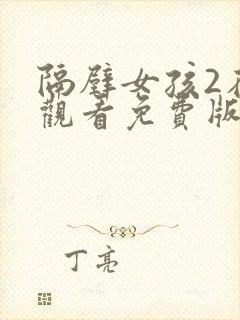 隔壁女孩2
觀看免費版
丁亮